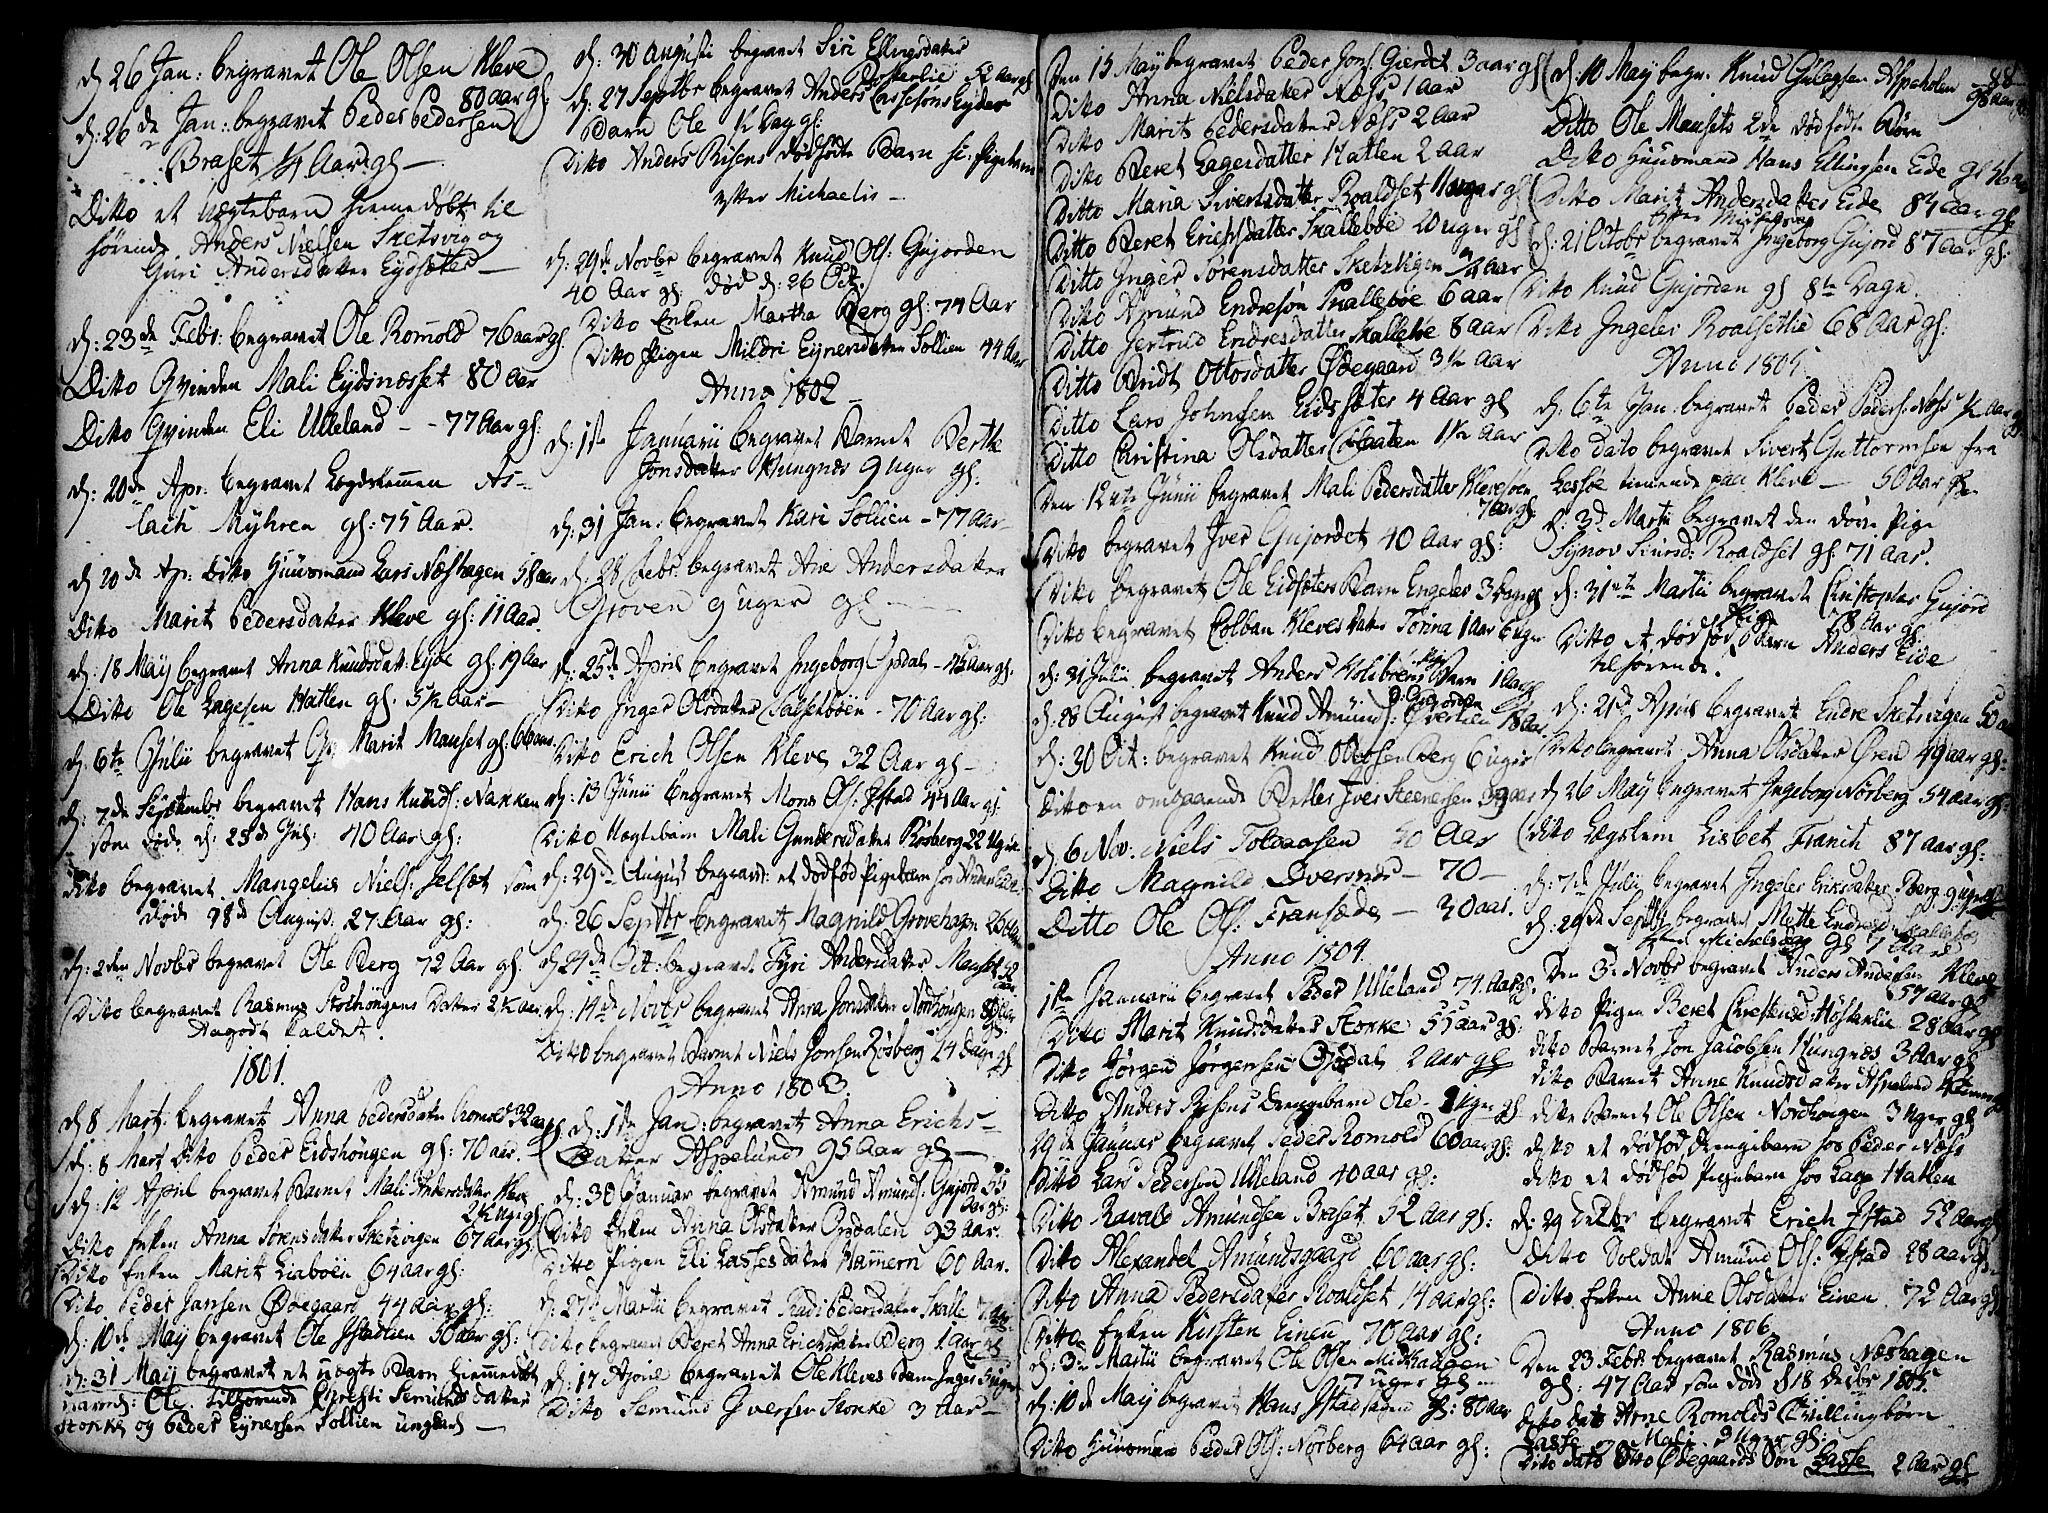 d 26 Jan: begravet Ole Olsen Kleve
80 aar gl.
d: 26de Jan: begravet Peder Pedersen
Braset 1/4 Aar gl —
Ditto et Uægtebarn hiemedøbt til
hørende Anders Nielsen Sketsvig og
Guri Andersdatter Eydsæter —
d: 23de Febr: begravet Ole Romold 76 aar gl
Ditto Qvinden Mali Eydsnæsset 80 aar
Ditto Qvinden Eli Ulleland - - 77 Aar gl:
d: 20de Apr: begravet Legdslemmen As-
lach Myhren gl: 75 Aar.
d 20de Ap: Dito Huusmand Lars Næshagen 58 aar
Dito Marit Pedersdatter Kleve gl: 11 Aar.
d: 18 Maÿ begravet Anna Knudsdat: Eyde gl. 19 Aar
Dito Ole Lagesen Hatlen gl. 5 1/2 Aar —
d: 6te Julii begravet Marit Mauset gl. 66 aar.
d: 7de Septembr begravet Hans Knuds: Nakken
som døde d: 23de Jul: 40 Aar gl:
Dito begravet Mangelus Niels: Helset som
døde 28de August: 27 Aar gl:
d: 2den Novbr begravet Ole Berg 72 Aar gl.
Dito begravet Rasmus Datter 2 1/2 Aar
Aagodt kaldet.
1801.
d 8 Mart. begravet Anna Pedersdatter Romold 32 aar
d: 8 Mart Dito Peder Eidshøngen gl: 70 aar. —
d: 12 April begravet Barnet Mali Andersdatter Kleve
2 1/2 Uger gl
Dito Enken Anna Sørensdatter Sketzvigen 67 aar gl.
Dito Enken Marit Liabøen 64 aar gl:
Dito Peder Jansen Ødegaard 44 aar gl:
d: 10de Maÿ begravet Ole Istadlien 50 aar gl:
d: 31 Maÿ begravet et uægte Barn hiemmedøbt
navnl: Ole. tilhørende Kirsti Semundsdatter
Storke og Peder Eynersen Sollien ungkarl —
d: 30 Augusti begravet Siri Ellingsdatter
52 aar gl
d: 27 Septbr begravet Anders Lassesøns Eydes
Barn Ole 1/2 Dag gl:
Ditto Anders Risens dødfødte Barn Pigebarn
efter Michaelis —
d: 29de Novbr begravet Knud Ols: Gujorden
40 Aar gl: død d: 26 Oct.
Dito Enken Martha Berg gl: 74 Aar
Ditto Pigen Mildri Eynersdatter Sollien 44 Aar
Anno 1802 —
d: 1ste Januarii begravet Barnet Berthe
Jonsdatter Hungnæs 9 Uger gl:
d: 31 Jan: begravet Kari Sollien - 77 Aar -
d: 28 Febr: begravet Ane Andersdatter
Groven 9 uger gl — — —
d: 25de April begravet Ingeborg Opdal - 45 Aar gl.
Dito Inger Olsdatter - 70 Aar gl:
Dito Erich Olsen Kleve 32 Aar gl —
d: 13 Junii begravet Mons Ols: Istad 44 Aar gl
Dito Uægtebarn Mali Gundersdatter Røsberg 22 Uger
d: 29de August begravet et dødfød Pigebarn for Anders Eide
d: 26 Septbr begravet Magnild Grovehagen 26
d 24de Oct: begravet Syri Andersdatter Mauset 52
aar
d: 14de Novbr begravet Anna Jonsdatter Nordhøngen
gl:
Dito begravet Barnet Niels Jonsen Røsberg 14 Dage gl
Anno 1803.
d: 1ste Jan: begravet Anna Erichs-
datter Aspelund 95 Aar gl —
d: 30 Januar begravet Amund Amunds: Gujord 55
Aar gl:
Dito Enken Anna Olsdatter Opdalen 93 aar.
Ditto Pigen Eli Lassesdatter Hamern 60 Aar.
d: 27de Martii begravet Radi Pedersdatter Skalle 7 Aar
Dito begravet Beret Anna Erichsdatter Berg 1 Aar gl
d: 17 April begravet Ole Kleves Barn Inger 5 uger
Dito Semund Iversen Storke 3 Aar —
Den 15 Maÿ begravet Peder Jons: Gierdet 3 aar gl
Dito Anna Nielsdatter Næss 1 aar
Dito Marit Pedersdatter Næss 2 Aar
Dito Beret Lagesdatter Hatlen 2 aar
Ditto Maria Sivertsdatter Roaldset 11 uger gl
Ditto Beret Erichsdatter Skallebøe 20 uger gl
Ditto Inger Sørensdatter Sketzvigen 3/4 Aar
Dito Amund Endresøn Skallebøe 6 aar
Ditto Gertrud Endresdatter Skallebøe 8 aar
Ditto Bridt Ottosdatter Ødegaard 3 1/2 Aar
Ditto Lars Johnsen Eidsæter 4 Aar gl
Ditto Christina Olsdatter 1 1/2 Aar
Den 12te Junii begravet Mali Pedersdatter Klevesøen
7 aar gl
Dito begravet Iver Gujordet 40 Aar gl:
Dito begravet Ole Eidsæters Barn Engeler 3 Dage gl
Dito begravet Colban Kleves datter Torina 1 aar 6 uger
d: 31 Julii begravet Anders Barn 1 Aar gl
d: 28 August begravet Knud Amunds: 18 aar
d: 30 Oct: begravet Knud Berg 6 uger
Dito en omgaaende Betler Iver Steenersen 59 aar
d 6 Nov. Niels Tolaasen 50 Aar
Ditto Magnild Øversnes — 70 —
Ditto Ole Ols: Fransæde — 30 aar.
Anno 1804.
1ste Januarii begravet Peder Ulleland 74 Aar gl.
Ditto Marit Knudsdatter Storke 55 aar gl:
Dito Jørgen Jørgensen Opdal 2 aar gl
Dito Anders Risens Drengebarn Ole - 2 Uger gl
29de Januar begravet Peder Romold 60 aar gl:
Ditto Lars Pedersen Ulleland 40 aar gl:
Dito Ravald Amundsen Braset 52 aar gl:
Dito Alexander Amundsgaard 60 aar gl:
Dito Anna Pedersdatter Roaldset 14 aar gl:
Dito Enken Kirsten Einen 70 Aar gl:
d: 3de Martii begravet Ole Olsen Midthaugen
7 uger gl —
d: 10de Maÿ begravet Hans Istadhagen gl: 80 aar
Dito Huusmand Peder Ols: Nørberg 64 aar gl:
88
d: 10 Maÿ begr. Knud Gulegsen Aspeholen 98 aar
Ditto Ole Mausets 2de dødfødte Børn
Dito Huusmand Hans Ellingsen Eide gl
Dito Marit Andersdatter Eide 84 aar gl
efter Michelsdag
d: 21 Octobr begravet Ingeborg Gujord 87 aar gl:
Dito Knud Gujorden gl 8te Dage.
Dito Ingeler Roalsetlie 68 aar gl:
Anno 1805.
d: 6te Jan: begravet Peder Peders: Næss 1/2 aar gl
Dito dato begravet Sivert Guttormsen fra
Lessøe tienende paa Kleve — 50 Aar gl
d: 3d. Martii begravet den døve Pige
Synov Siursd: Roaldset gl 71 aar.
d: 31te Martii begravet Christopher Gujord
78 Aar gl.
Ditto et dødfød Pige Barn Anders Eide
tilhørende.
d: 21de Aprilis begravet Endre Sketvigen 50 aar
Dito begravet Anna Olsdatter Øren 49 aar gl:
d 26 Maÿ begravet Ingeborg Nørberg 54 aar gl:
Dito Legslem Lisbet Franch 87 aar gl:
d: 7de Julii begravet Ingeler Eriksdatter Berg 9 uger gl
d: 29de Septbr begravet Mette Endresd: Skallebøe
gl 7 Aar
Den 3de Novbr begravet Anders Andersen Kleve
57 aar gl
dito Pigen Beret Christensd: Høstadlie 28 aar gl
dito Barnet Jon Jacobsen Hungnæs 3 Aar gl
dito Barnet Anne Knudsdatter Aspelund
dito Barnet Ole Olsen Nordhøngen 3 Uger gl
dito et dødfød Drengebarn hos Peder Næss
dito et dødfød Pigebarn hos Lage Hatlen
d: 29 Decbr begravet Erich Istad 52 Aar gl
Dito Soldat Amund Ols: Istad 28 aar gl
Dito Enken Anne Olsdatter Einen 72 Aar gl
Anno 1806.
Den 23 Febr begravet Rasmus Næshagen
gl: 47 Aar som døde d 18 Decbr 1805.
Dito dato Arne Romolds Tvillingbørn
Lasse og Mali. 3 Uger gl:
Dito dato Otto Ødegaards Søn Lasse 2 Aar gl